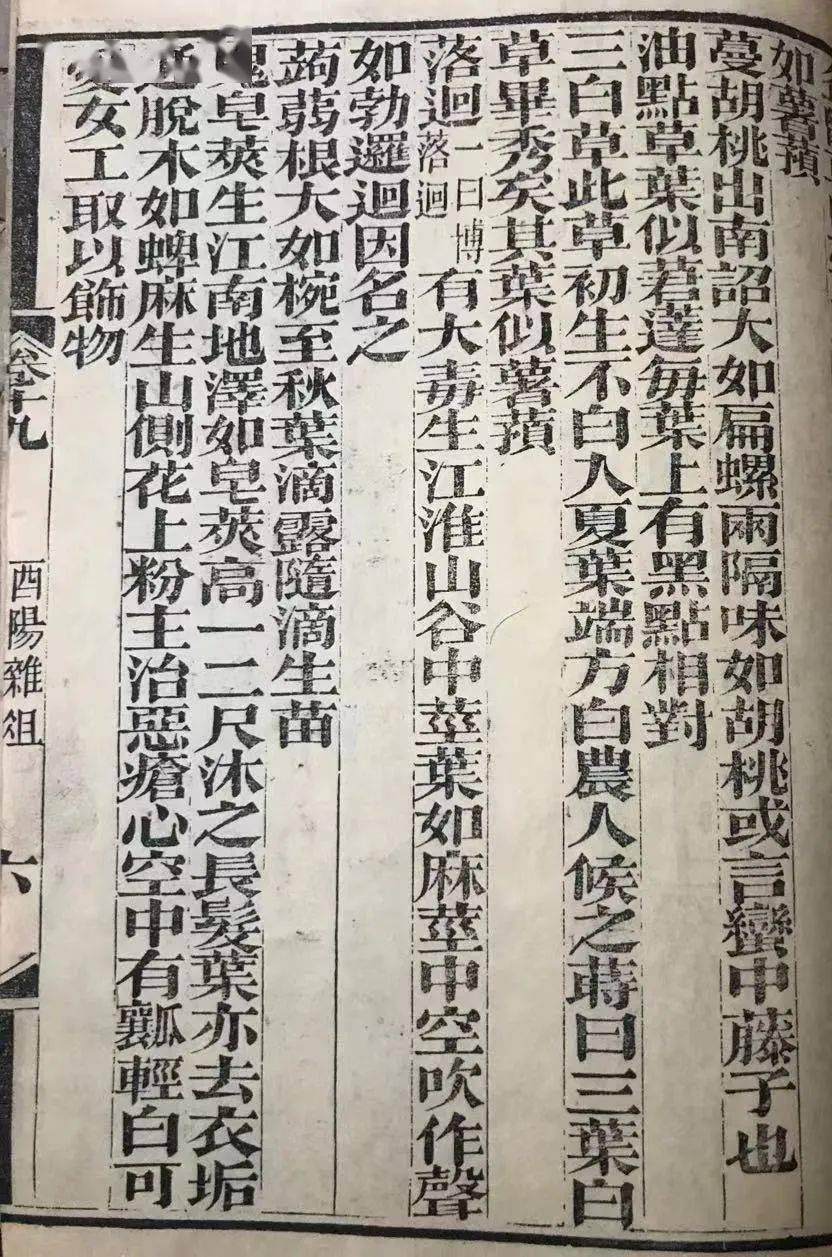 如薯蕷
蔓胡桃出南詔大如扁螺兩隔味如胡桃或言蠻中藤子也
油點草葉似莙薘每葉上有黑點相對
三白草此草初生不白入夏葉端方白農人候之蒔曰三葉白
草畢秀矣其葉似薯蕷
落迴一曰博落迴有大毒生江淮山谷中莖葉如麻莖中空吹作聲
如勃邏迴因名之
蒟蒻根大如椀至秋葉滴露隨滴生苗
鬼皂莢生江南地澤如皂莢高一二尺沐之長髮葉亦去衣垢
通脫木如蜱麻生山側花上粉主治惡瘡心空中有瓤輕白可
愛女工取以飾物
卷十九
酉陽雜俎
六